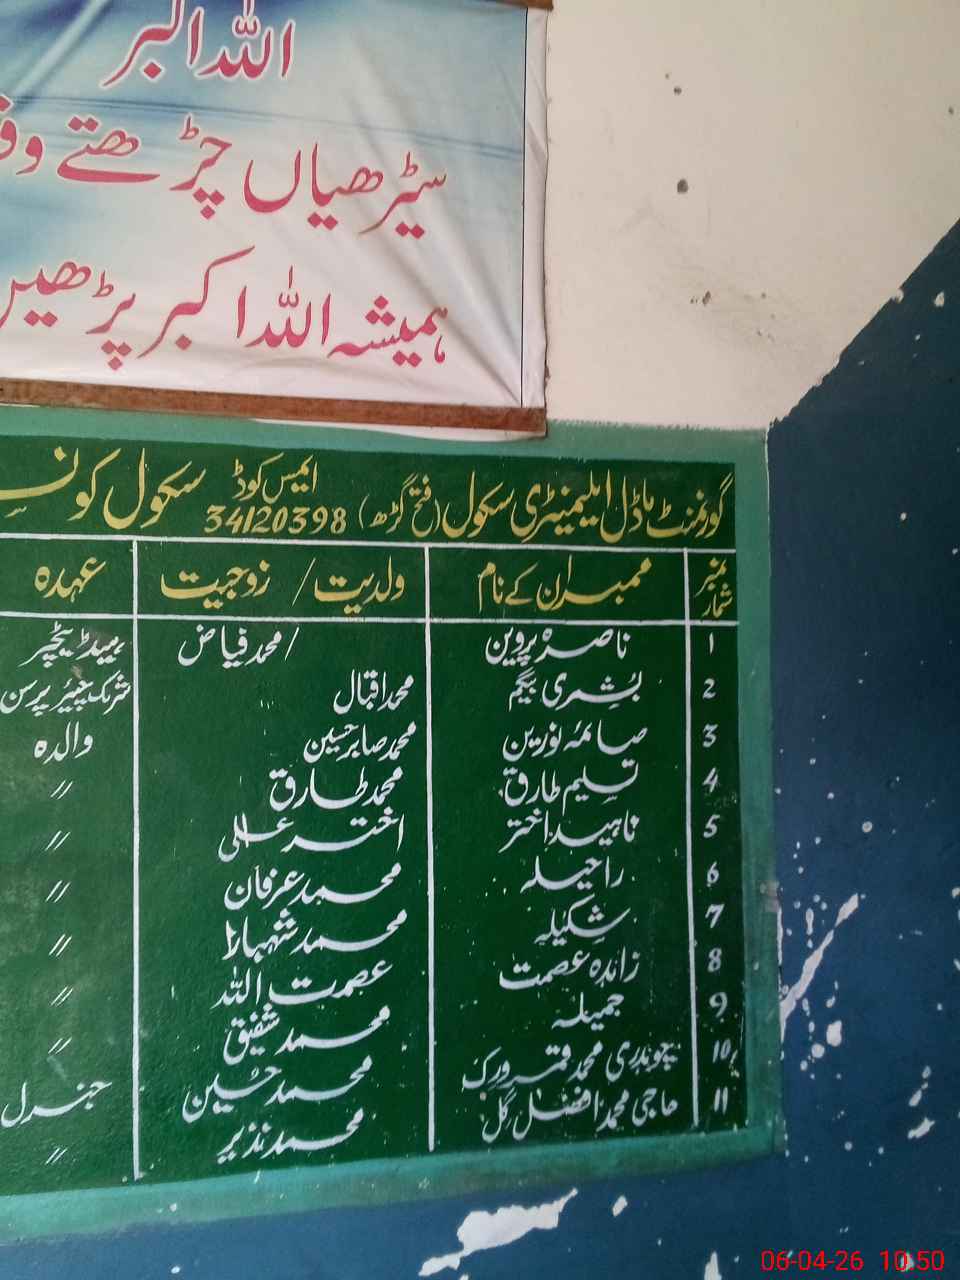 اللہ اکبر
سیڑھیاں چڑھتے
ہمیشہ اللہ اکبر پڑھیں
گورنمنٹ ماڈل ایلیمنٹری سکول (فتح گڑھ) ایمس کوڈ 34120398 سکول
نمبر شمار ممبران کے نام ولدیت / زوجیت عہدہ
1 ناصرہ پروین / محمد فیاض ہیڈ ٹیچر
2 بشریٰ بیگم محمد اقبال شریک چیئر پرسن
3 صائمہ نورین محمد صابر حسین والدہ
4 تسلیم طارق محمد طارق //
5 ناہید اختر اختر علی //
6 راحیلہ محمد عرفان //
7 شکیلہ محمد شہباز //
8 زاہدہ عصمت عصمت اللہ //
9 جمیلہ محمد شفیق //
10 چوہدری محمد قمر ورک محمد حسین جنرل
11 حاجی محمد افضل گل محمد نذیر //
06-04-26 10:50